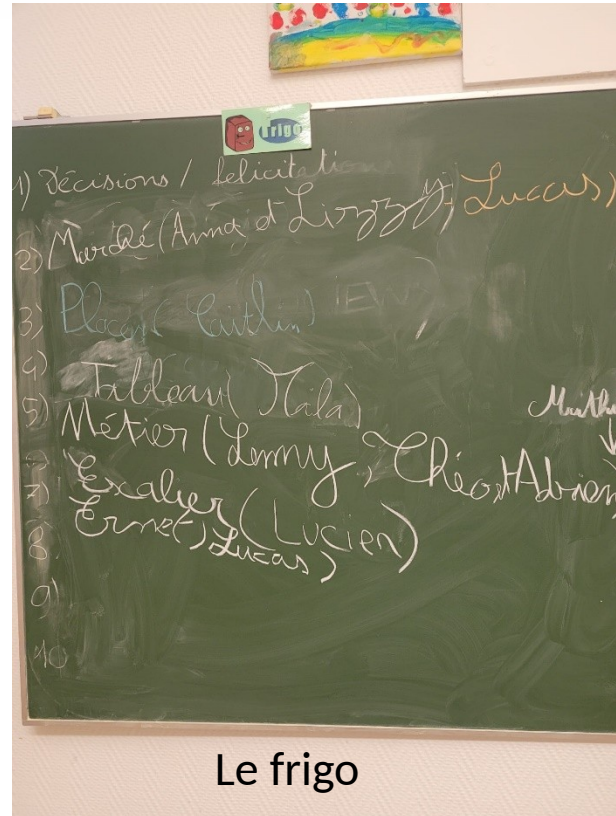 frigo
1) Décisions / felicitation
2) Marché (Anna et Lizzy, Luccas)
3) Places (Caitlin)
4) Tableau (Mila)
5) Métier (Lenny, Théo et Adrien
7) Escalier (Lucien)
8. Lucas)
9)
10
Le frigo